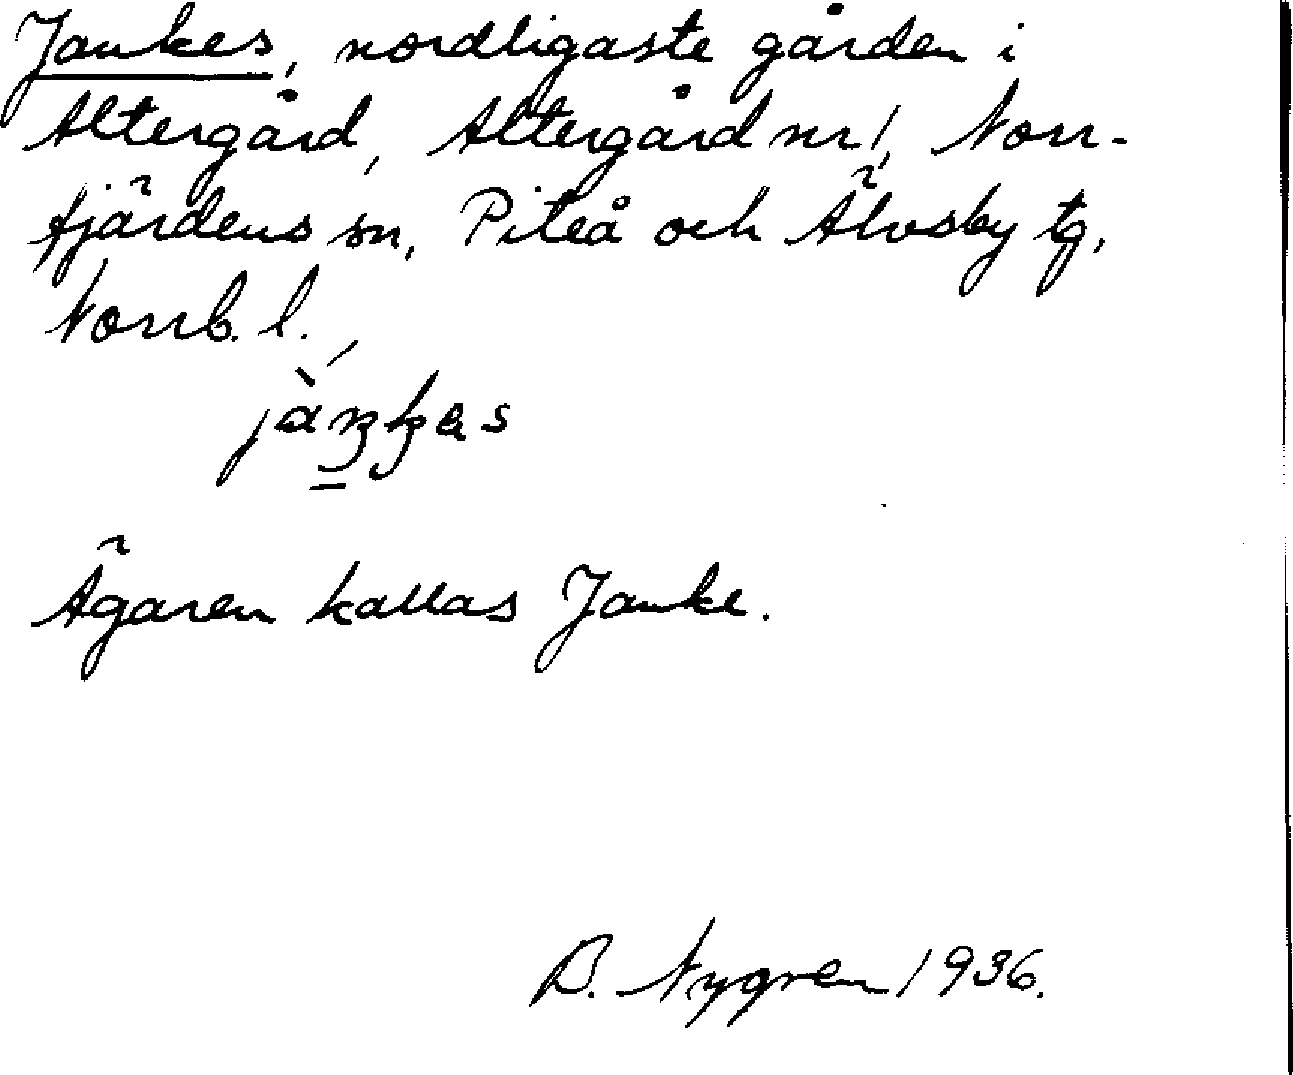 Jankes, nordligaste gården i
Altergård, Altergård nr 1, Norr-
fjärdens sn, Piteå och Älvsby tg,
Norrb. l.
Ägaren kallas Janke.
B. Nygren 1936.